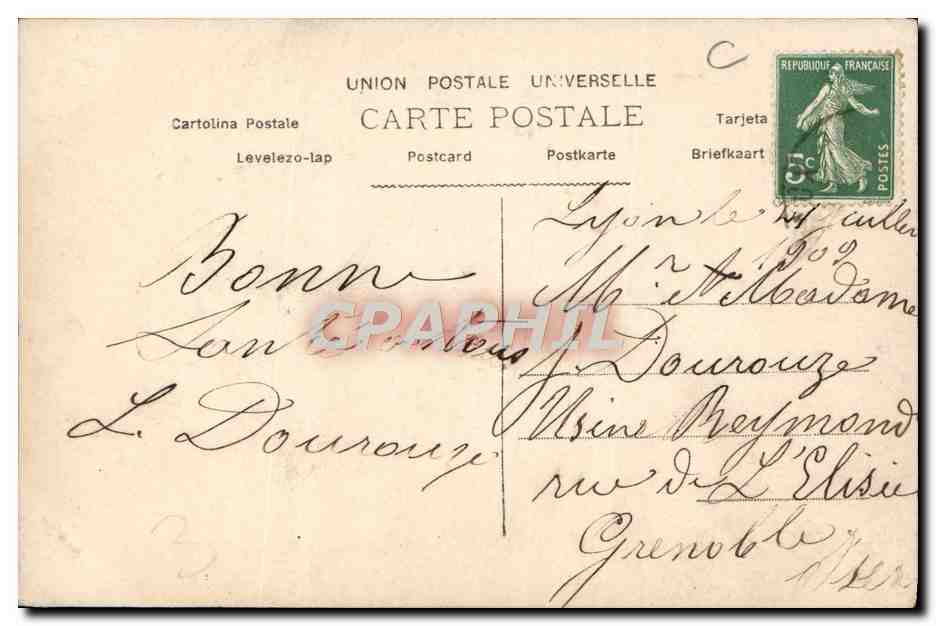 C
REPUBLIQUE FRANÇAISE
5c
POSTES
UNION POSTALE UNIVERSELLE
CARTE POSTALE
Cartolina Postale Tarjeta
Levelezo-lap Postcard Postkarte Briefkaart
Lyon le 21 Juillet
1909
Mr et Madame
J. Dourouze
Usine Reymond
rue de L'Elisée
Grenoble
Isère
Bonne
Santé à tous
L. Dourouze
CPAPHIL
3